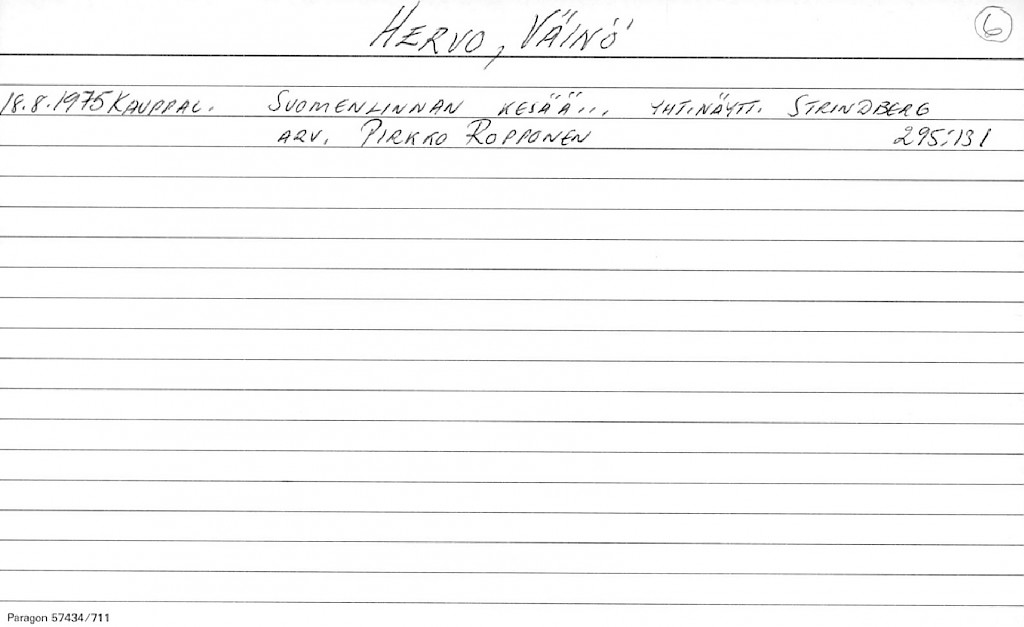 HERVO, VÄINÖ
6
18.8.1975 KAUPPAL. SUOMENLINNAN KESÄÄ... YHT.NÄYTT. STRINDBERG
ARV. PIRKKO ROPPONEN 295:131
Paragon 57434/711